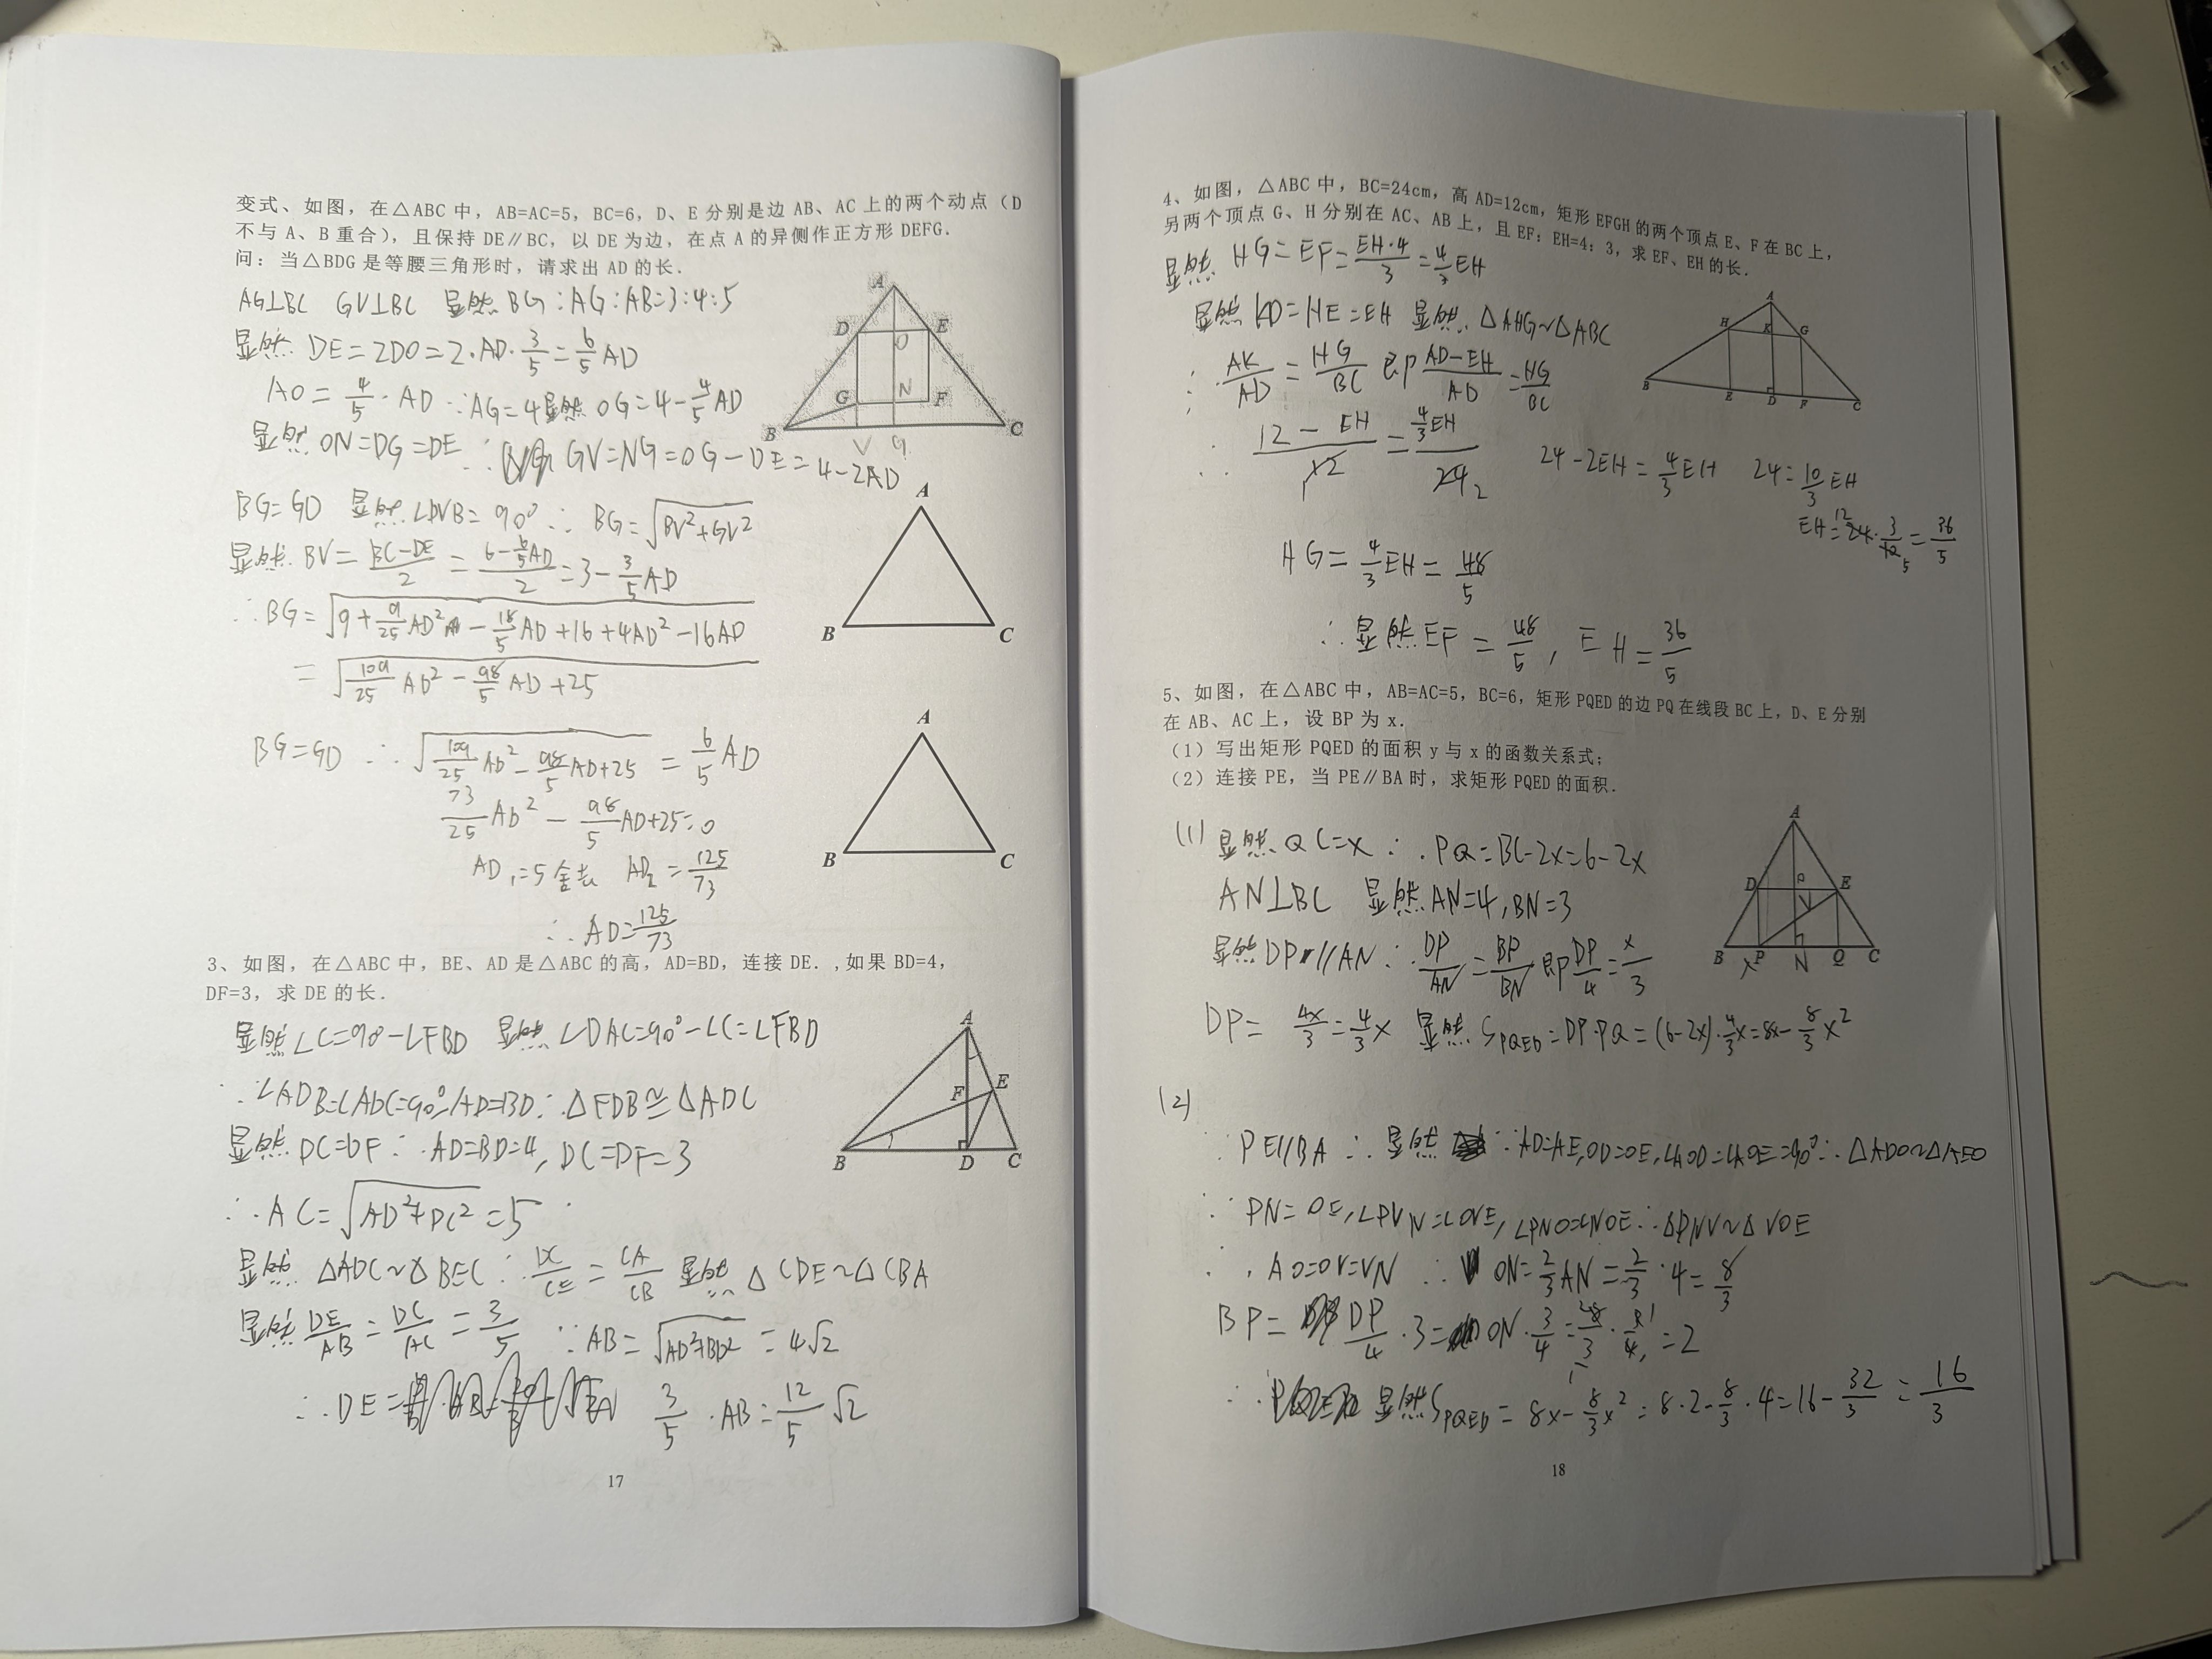 变式、如图，在△ABC 中，AB=AC=5，BC=6，D、E 分别是边 AB、AC 上的两个动点（D
不与 A、B 重合），且保持 DE∥BC，以 DE 为边，在点 A 的异侧作正方形 DEFG．
问：当△BDG 是等腰三角形时，请求出 AD 的长．
AG⊥BC GV⊥BC 显然 BG:AG:AB=3:4:5
显然 DE=2DO=2·AD·3/5=6/5AD
AO=4/5·AD ∵AG=4显然 OG=4-4/5AD
显然 ON=DG=DE ∴ GV=NG=OG-DE=4-2AD
BG=GD 显然∠DVB=90° ∴ BG=√(BV²+GV²)
显然 BV=(BC-DE)/2=(6-6/5AD)/2=3-3/5AD
∴BG=√(9+9/25AD²-18/5AD+16+4AD²-16AD)
=√(109/25AD²-98/5AD+25)
BG=GD ∴√(109/25AD²-98/5AD+25)=6/5AD
73/25AD²-98/5AD+25=0
AD₁=5舍去 AD₂=125/73
∴AD=125/73
A
D E
O
N
G F
B V G C
A
B C
A
B C
3、如图，在△ABC 中，BE、AD 是△ABC 的高，AD=BD，连接 DE．,如果 BD=4，
DF=3，求 DE 的长．
显然∠C=90°-∠FBD 显然∠DAC=90°-∠C=∠FBD
∵∠ADB=∠ADC=90°,AD=BD∴△FDB≌△ADC
显然 DC=DF ∵AD=BD=4,DC=DF=3
∴AC=√(AD²+DC²)=5
显然 △ADC∽△BEC ∴DC/CE=CA/CB 显然 △CDE∽△CBA
显然 DE/AB=DC/AC=3/5 ∵AB=√(AD²+BD²)=4√2
∴DE= 3/5·AB=12/5√2
A
F E
B D C
17
4、如图，△ABC 中，BC=24cm，高 AD=12cm，矩形 EFGH 的两个顶点 E、F 在 BC 上，
另两个顶点 G、H 分别在 AC、AB 上，且 EF：EH=4：3，求 EF、EH 的长．
显然 HG=EF=EH·4/3=4/3EH
显然 KD=HE=EH 显然△AHG∽△ABC
∴AK/AD=HG/BC 即(AD-EH)/AD=HG/BC
∴(12-EH)/12=(4/3EH)/24 24-2EH=4/3EH 24=10/3EH
EH=24·3/10=36/5
HG=4/3EH=48/5
∴显然EF=48/5，EH=36/5
A
H K G
B E D F C
5、如图，在△ABC 中，AB=AC=5，BC=6，矩形 PQED 的边 PQ 在线段 BC 上，D、E 分别
在 AB、AC 上，设 BP 为 x．
（1）写出矩形 PQED 的面积 y 与 x 的函数关系式；
（2）连接 PE，当 PE∥BA 时，求矩形 PQED 的面积．
(1) 显然 QC=x ∴PQ=BC-2x=6-2x
AN⊥BC 显然AN=4,BN=3
显然DP//AN∴DP/AN=BP/BN即DP/4=x/3
DP=4x/3=4/3x 显然 S_PQED=DP·PQ=(6-2x)·4/3x=8x-8/3x²
A
D O E
V
B x P N Q C
(2)
∵PE//BA ∴显然 ∵AD=AE,OD=OE,∠AOD=∠AOE=90°∴△ADO∽△AEO
∵PN=OE,∠PVN=∠OVE,∠PNO=∠NOE∴△PNV∽△VOE
∴AO=OV=VN ∴ON=2/3AN=2/3·4=8/3
BP=DP/4·3=ON·3/4=8/3·3/4=2
∴ 显然S_PQED=8x-8/3x²=8·2-8/3·4=16-32/3=16/3
18